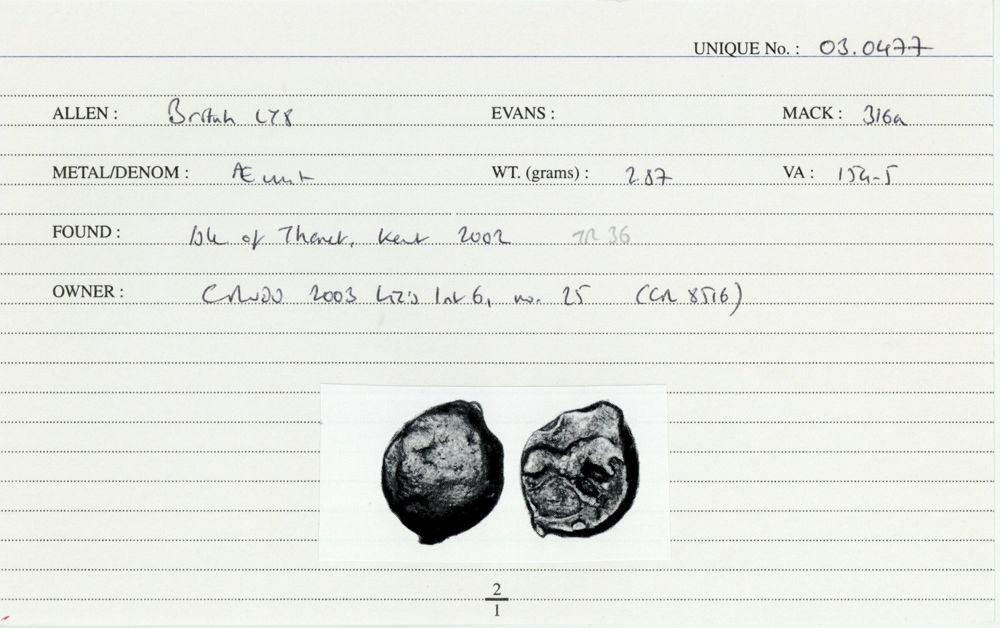 UNIQUE No. : 03.0477
ALLEN : British LY8 EVANS : MACK : 316a
METAL/DENOM : Æ unit WT. (grams) : 2.87 VA : 154-5
FOUND : Isle of Thanet, Kent 2002 TR 36
OWNER : 2003 6, no. 25 (CR 8516)
2
1